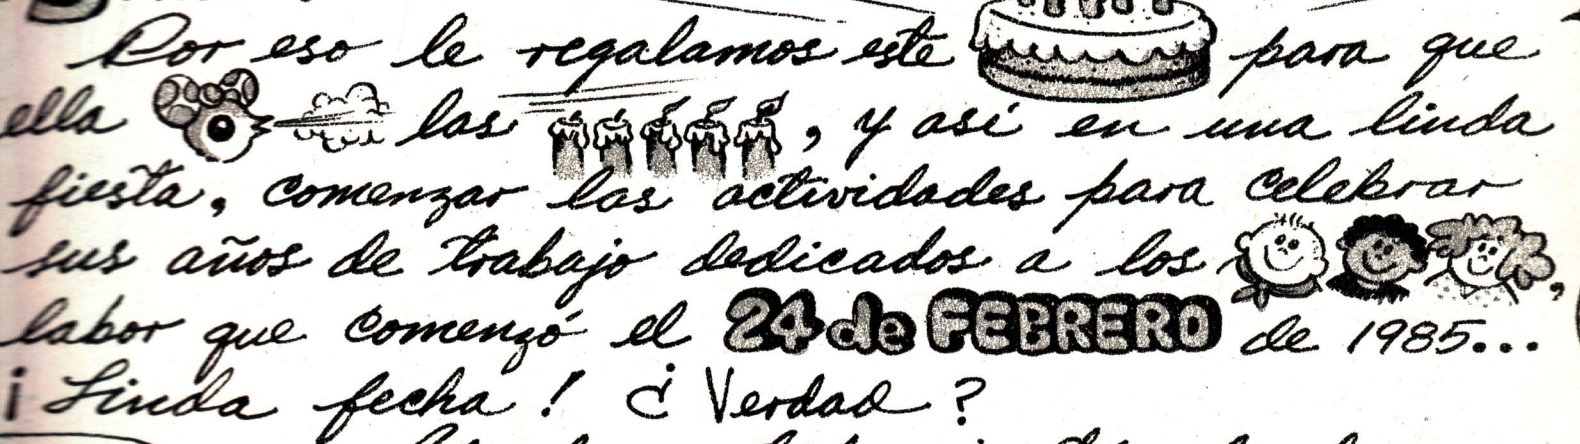 Por eso le regalamos este para que
ella las , y así en una linda
fiesta, comenzar las actividades para celebrar
sus años de trabajo dedicados a los ,
labor que comenzó el 24 de FEBRERO de 1985...
¡Linda fecha! ¿Verdad?